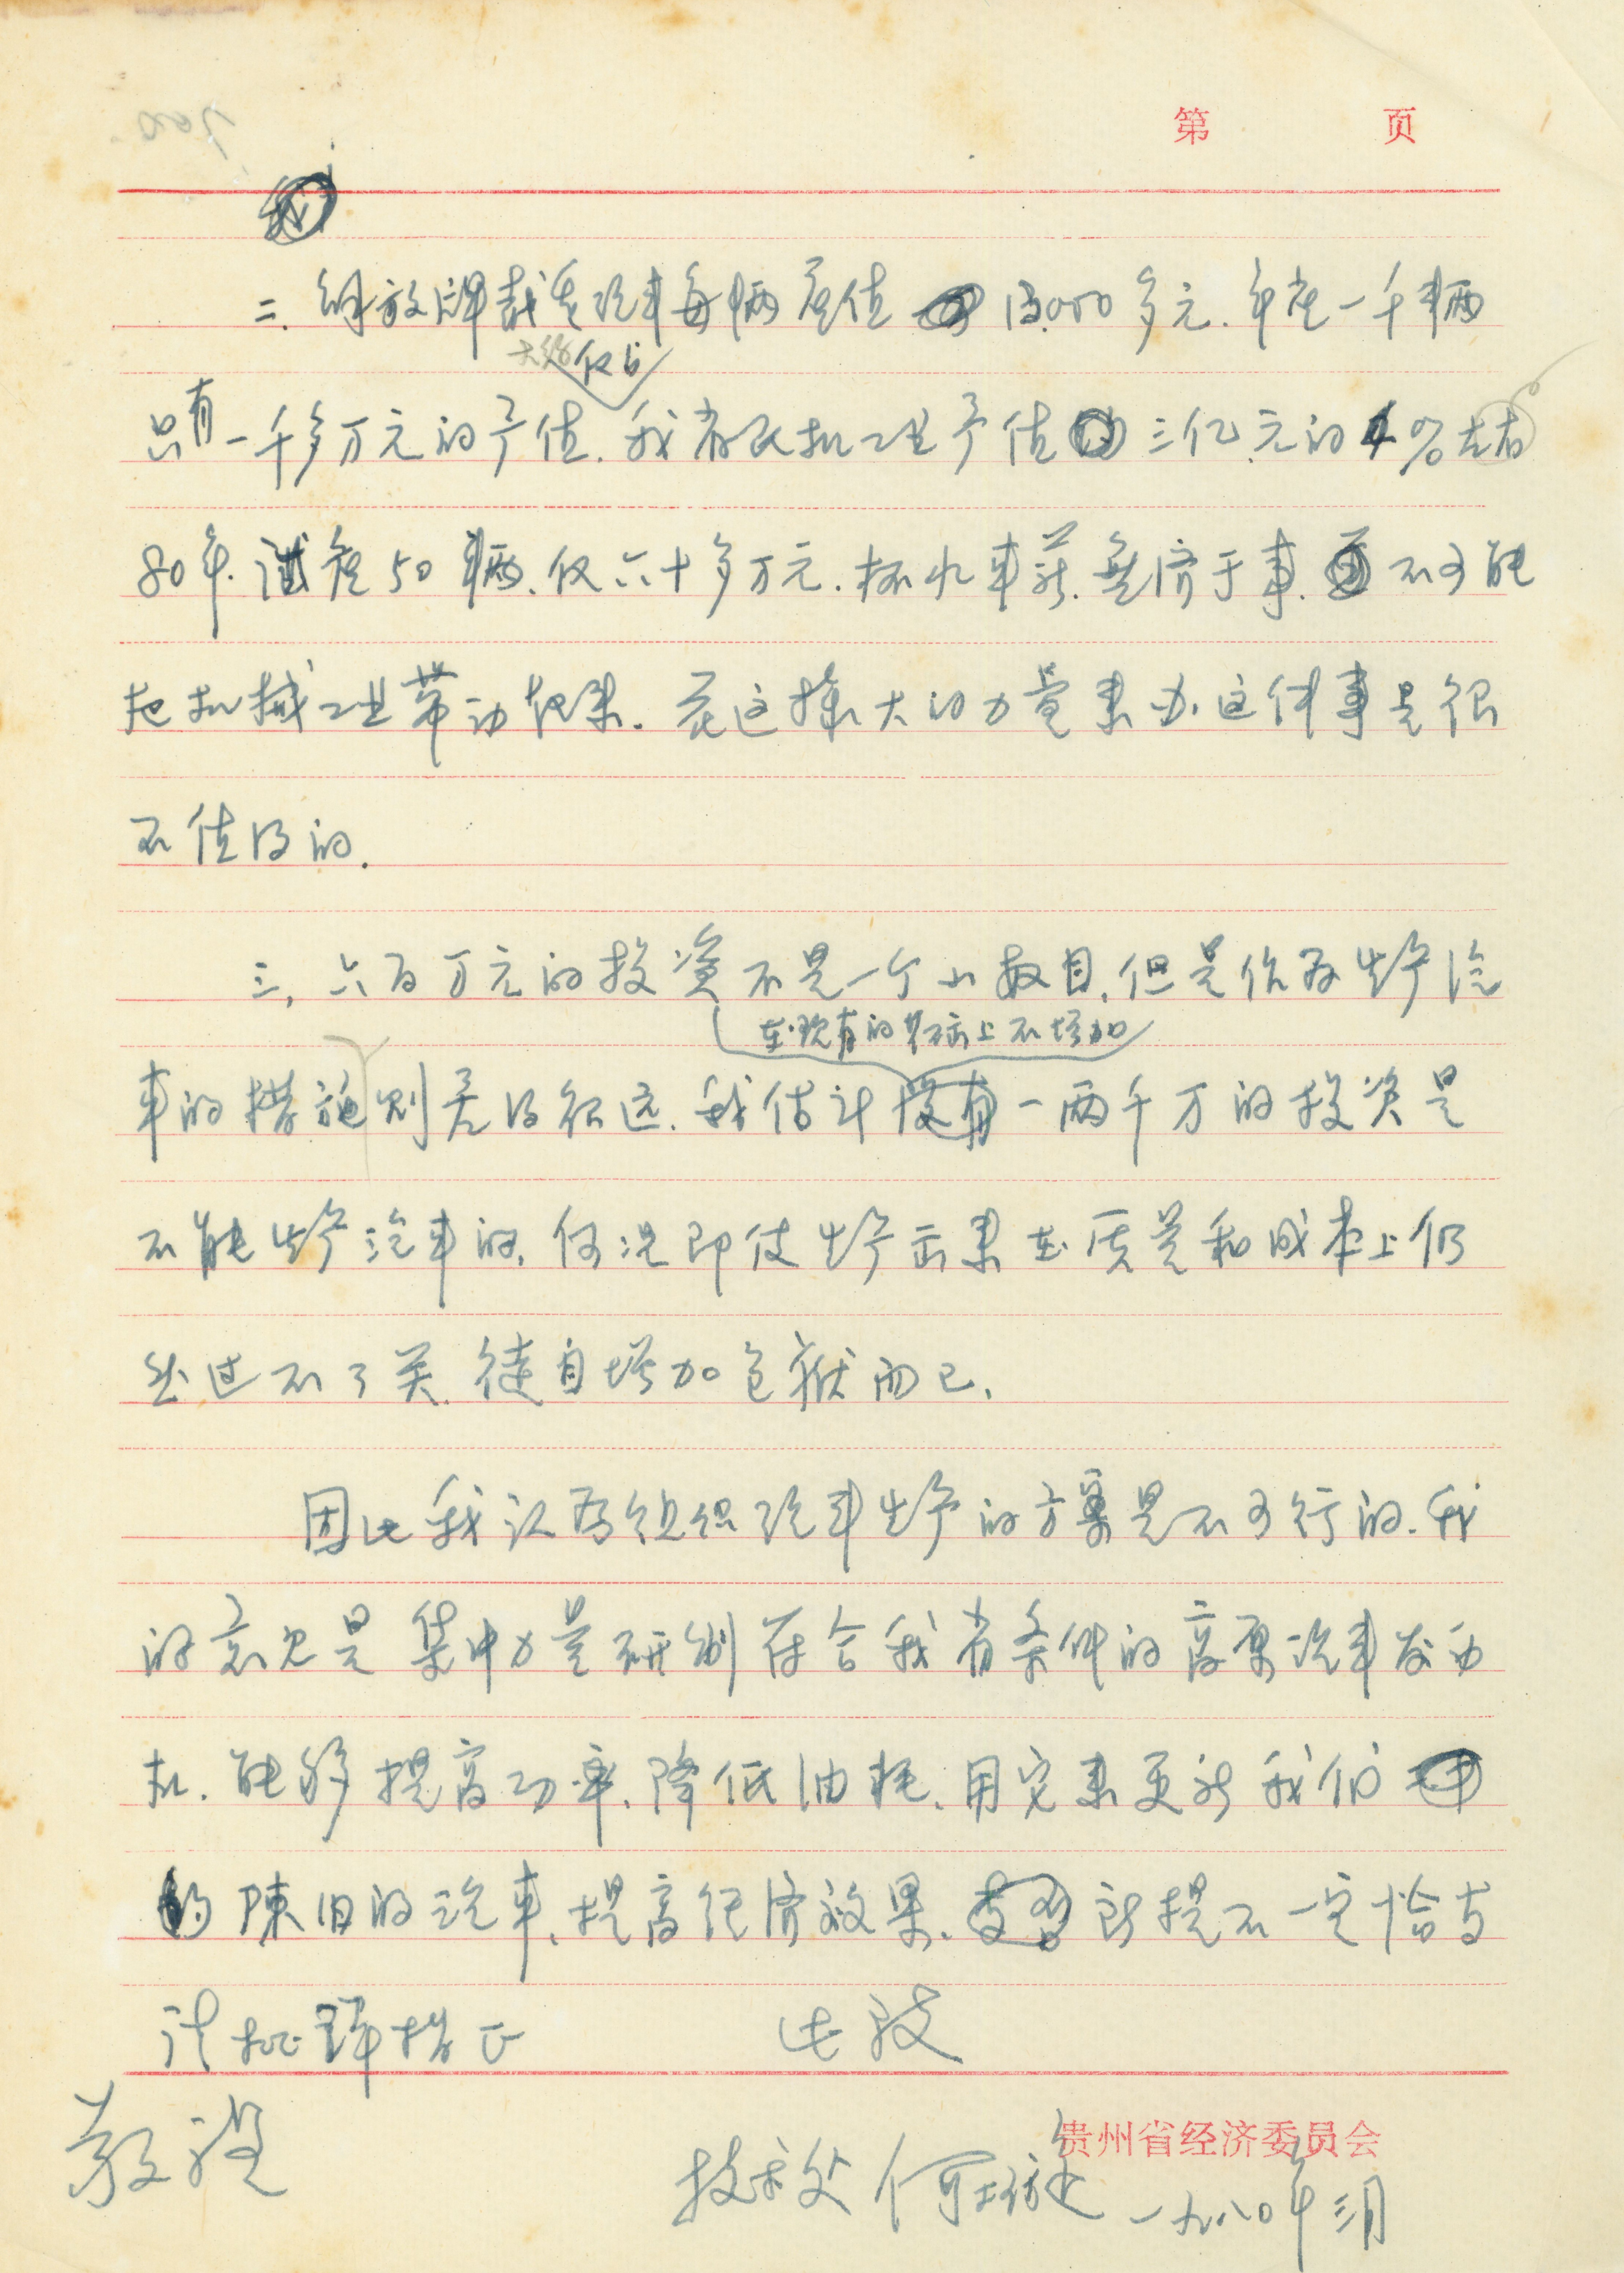 第 页
二、解放牌载重汽车每辆产值 13,000多元.年产一千辆
大约仅占
只有一千多万元的产值.我省民机工业产值三亿元的4%左右
80年.试制50辆.仅六十多万元.杯水车薪.无济于事.不可能
把机械工业带动起来.花这样大的力量来办这件事是很
不值得的.
三,六百万元的投资不是一个小数目.但是作为生产汽
在现有的基础上不增加
车的措施则差得很远.我估计一两千万的投资是
不能生产汽车的.何况即使生产出来在质量和成本上仍
然过不了关.徒自增加包袱而已.
因此我认为组织汽车生产的方案是不可行的.我
的意见是集中力量研制符合我省条件的高原汽车发动
机.能够提高功率.降低油耗.用它来更新我们
的陈旧的汽车.提高经济效果.所提不一定恰当
请批评指正 此致
敬礼
贵州省经济委员会
技术处 何 一九八〇年三月